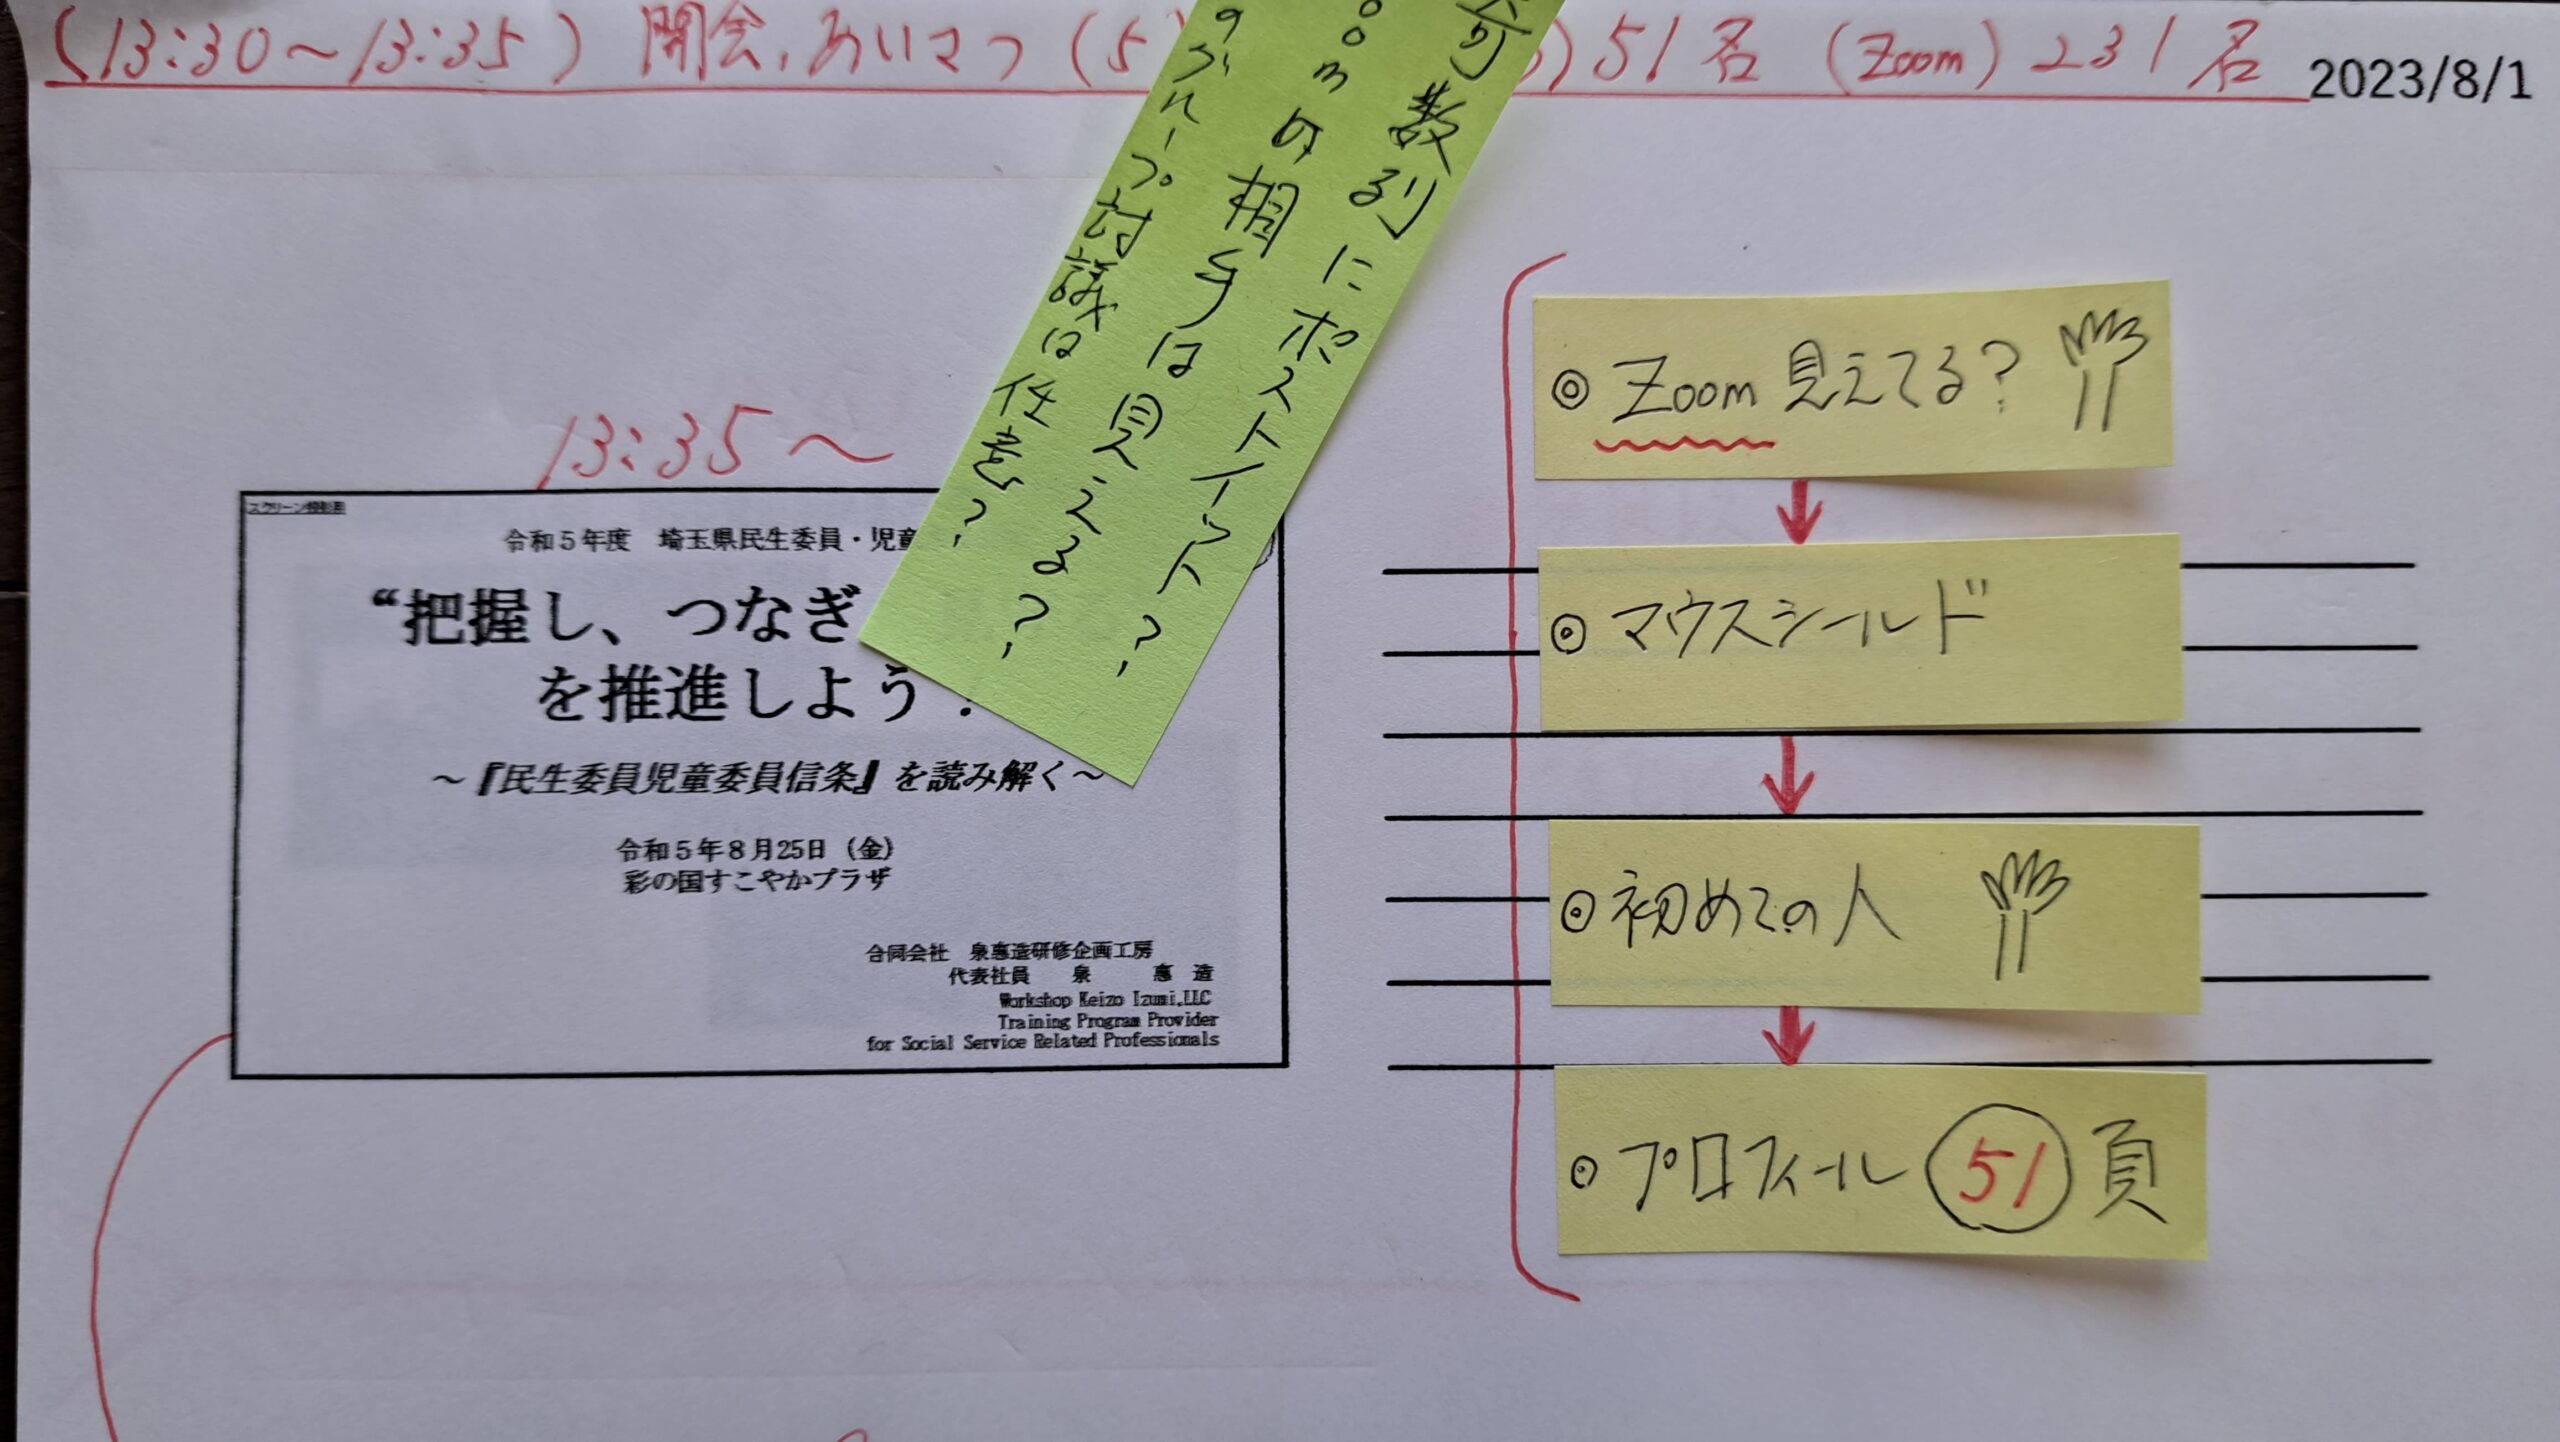 (13:30～13:35) 開会、あいさつ (5
) 51名 (Zoom) 231名
2023/8/1
奇数列にポストイット?
oomの相手は見える?
のグループ討議は任意?
13:35～
スクリーン投影用
令和5年度 埼玉県民生委員・児童
“把握し、つなぎ
を推進しよう
～『民生委員児童委員信条』を読み解く～
令和5年8月25日(金)
彩の国すこやかプラザ
合同会社 泉惠造研修企画工房
代表社員 泉 惠 造
Workshop Keizo Izumi,LLC
Training Program Provider
for Social Service Related Professionals
◎ Zoom 見えてる?
◎ マウスシールド
◎ 初めての人
◎ プロフィール 51 頁